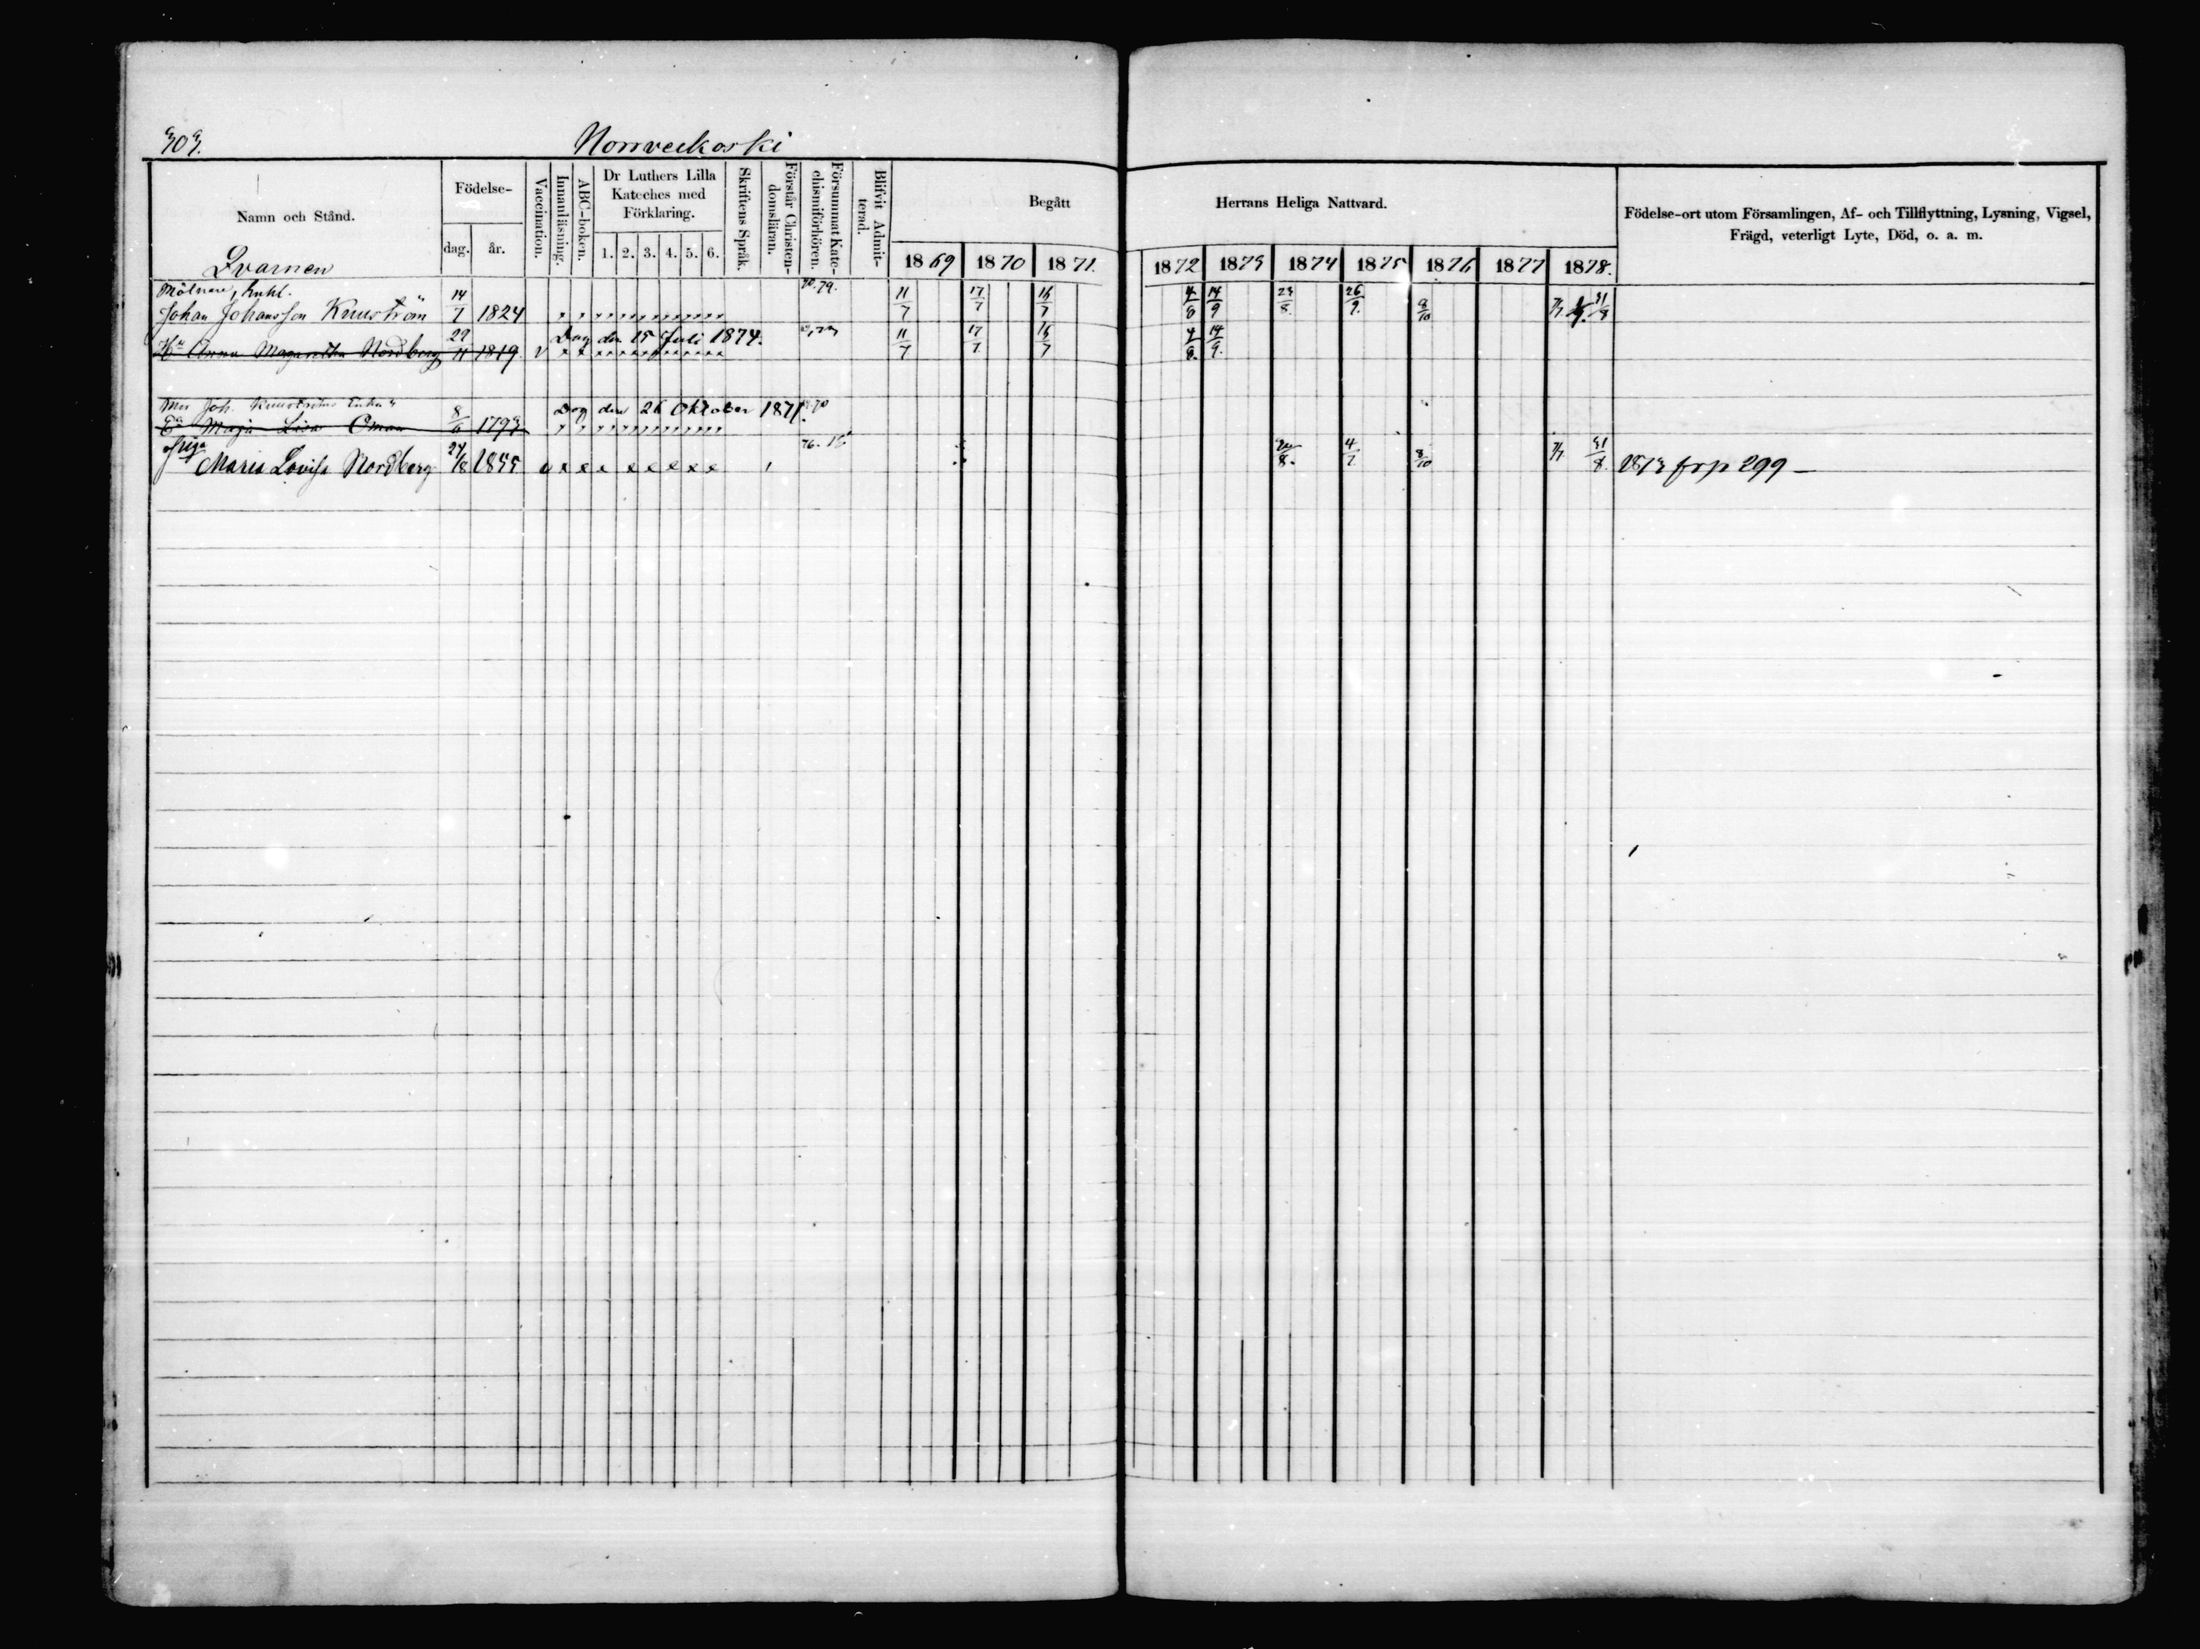 303.
Norrveckoski
Namn och Stånd.
Födelse-
dag.
år.
Vaccination.
Innanläsning.
ABC-boken.
Dr Luthers Lilla
Kateches med
Förklaring.
1. 2. 3. 4. 5. 6.
Skriftens Språk.
Förstår Christen-
domsläran.
Försummat Kate-
chismiförhören.
Blifvit Admit-
terad.
Begått Herrans Heliga Nattvard.
1869 1870 1871. 1872 1873 1874 1875 1876 1877 1878.
Födelse-ort utom Församlingen, Af- och Tillflyttning, Lysning, Vigsel,
Frägd, veterligt Lyte, Död, o. a. m.
Qvarnen
Mölnare, Enkl. 14
Johan Johansson Knuström 7 1824 11/7 17/7 16/7 4/6 14/9 23/8. 26/9. 8/10 31/8
29 Dog den 15 Juli 1874.
Hu Anna Magaretha Nordberg 11 1819 v 11/7 17/7 16/7 4/6. 14/9.
Joh. Enka 8 Dog den 26 Oktober 1871.
Maja Lisa Öman 6 1793
Piga
Maria Lovisa Nordberg 24/8 1855 v 76. 4/7 8/10 7/7. 31/8. 1873 fr p 299 –